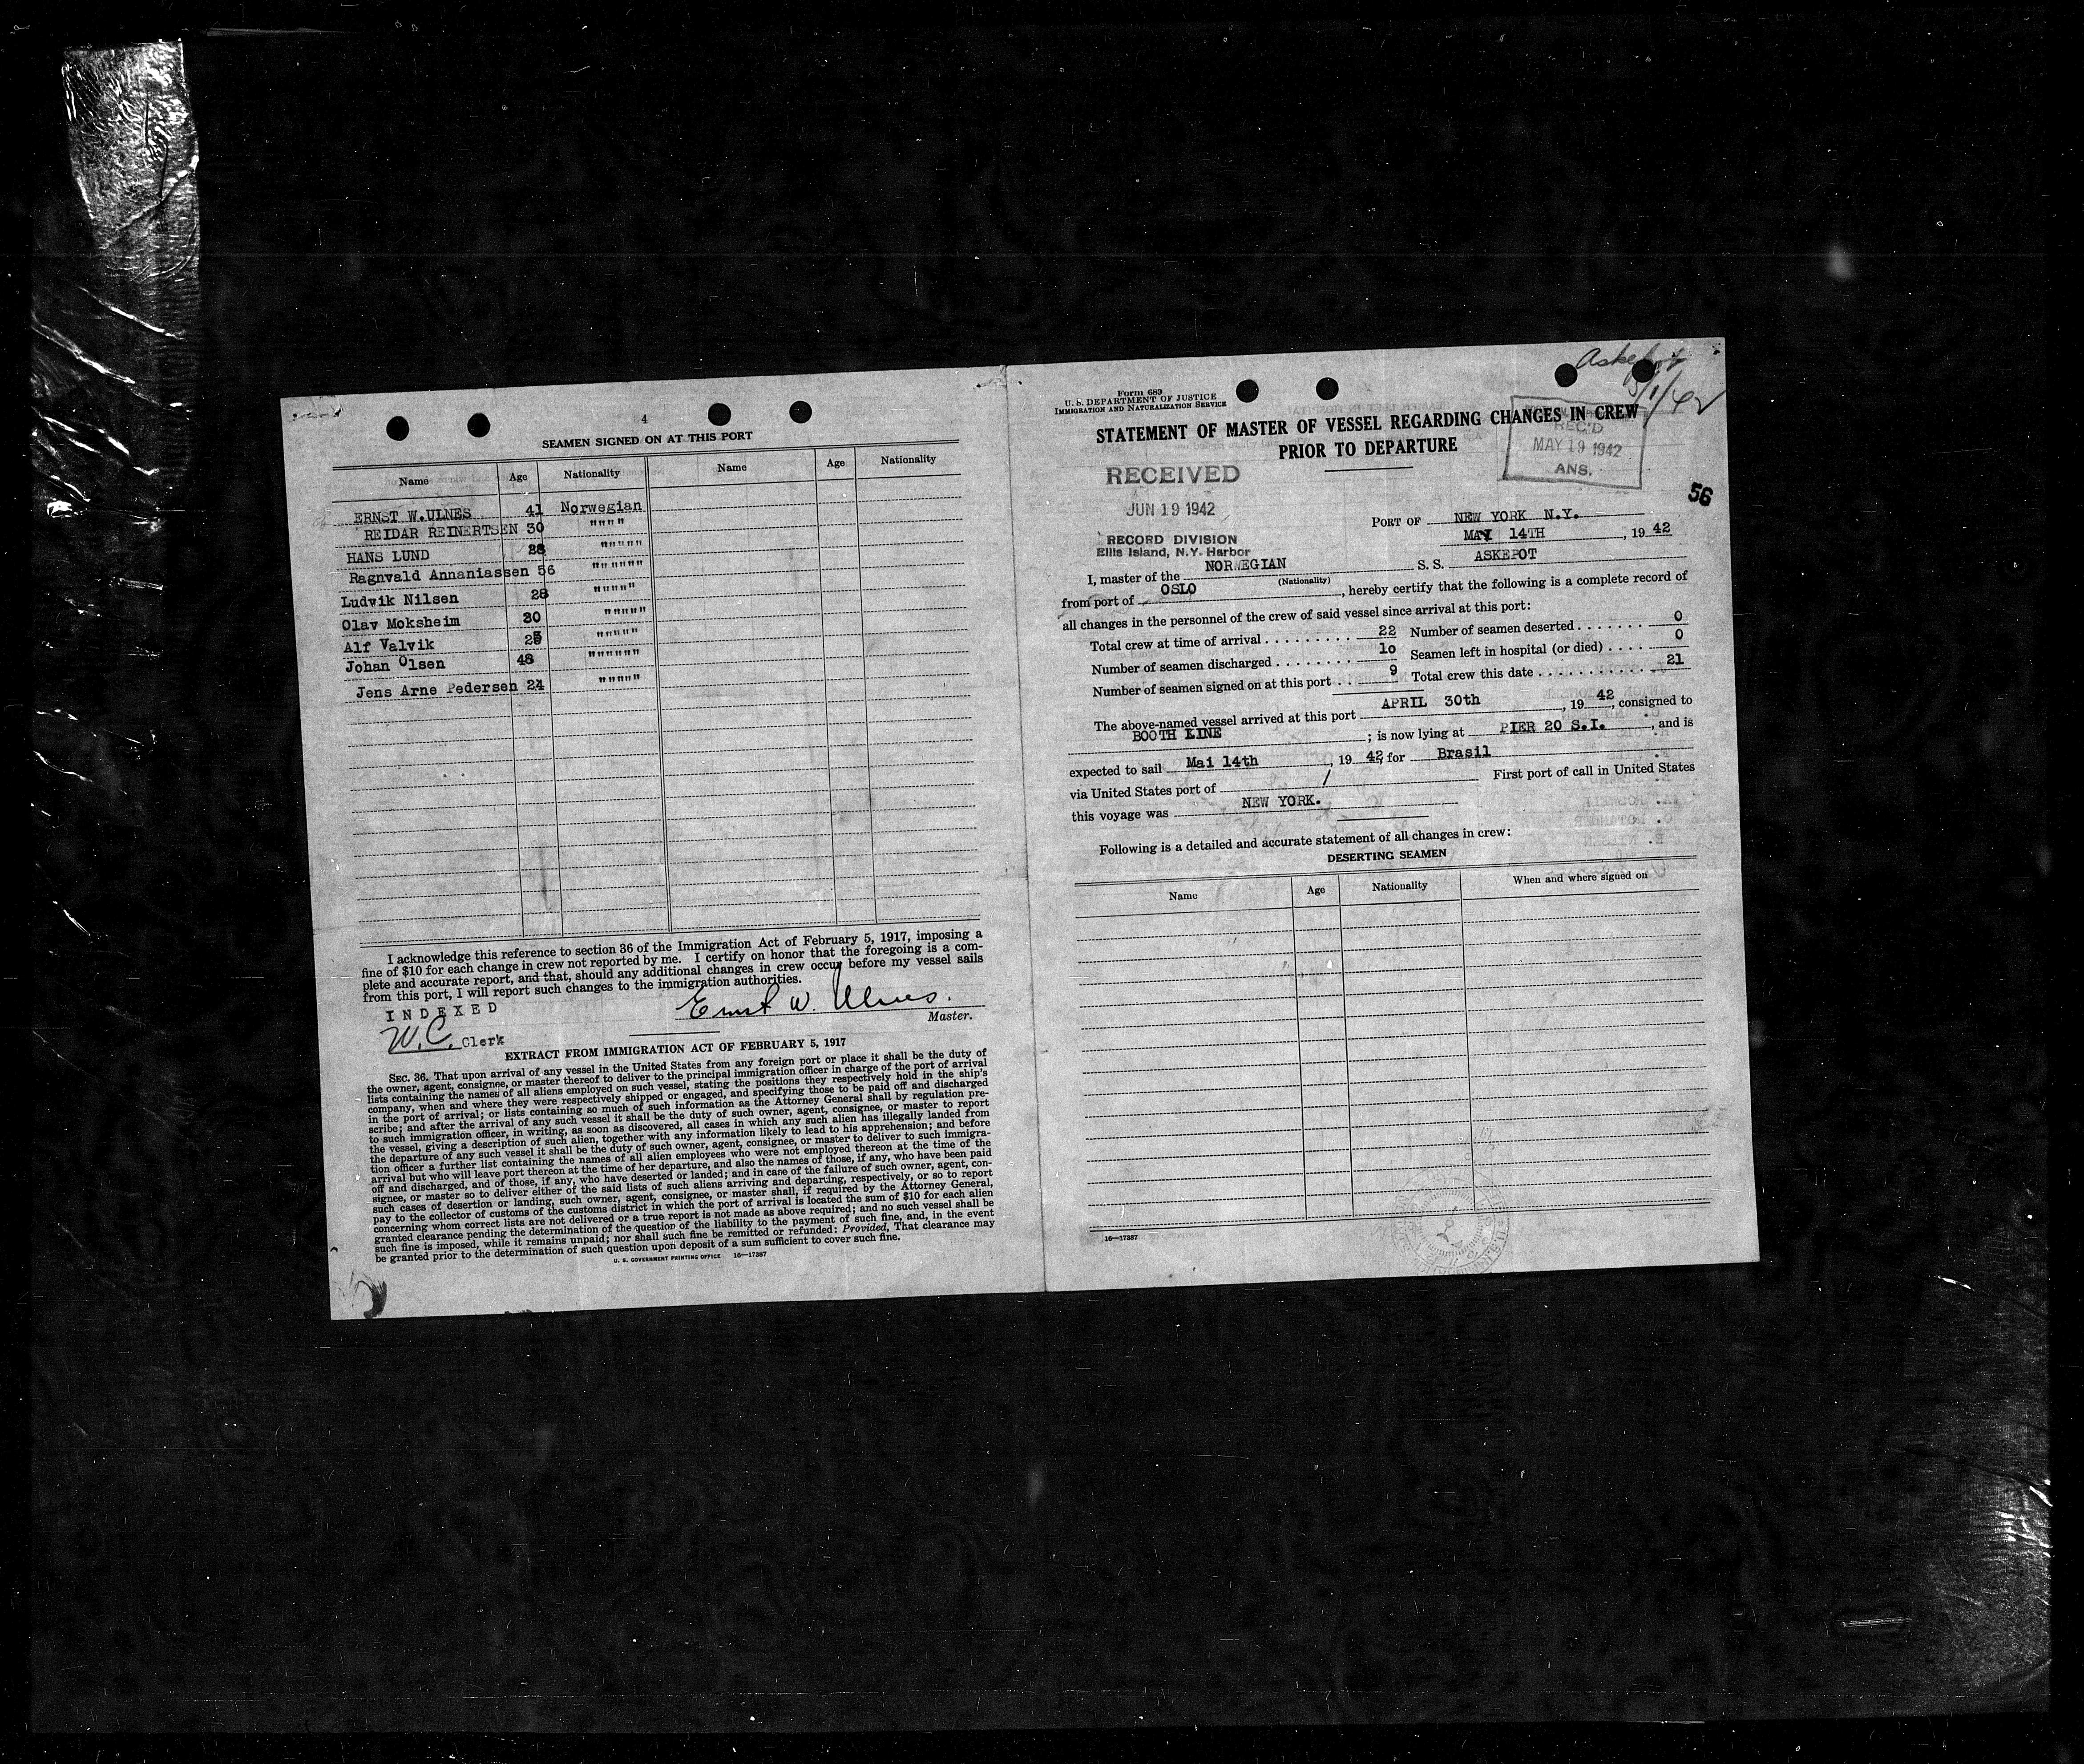 4
SEAMEN SIGNED ON AT THIS PORT
Name Age Nationality Name Age Nationality
ERNST W.ULNES 41 Norwegian
REIDAR REINERTSEN 30 """"
HANS LUND 28 """""
Ragnvald Annaniassen 56 """"""
Ludvik Nilsen 28 """""
Olav Moksheim 30 """""
Alf Valvik """""
Johan Olsen 48 """"""
Jens Arne Pedersen 24 """""
I acknowledge this reference to section 36 of the Immigration Act of February 5, 1917, imposing a
fine of $10 for each change in crew not reported by me. I certify on honor that the foregoing is a com-
plete and accurate report, and that, should any additional changes in crew occur before my vessel sails
from this port, I will report such changes to the immigration authorities.
INDEXED
Ernst W. Ulnes.
Master.
W.C. Clerk
EXTRACT FROM IMMIGRATION ACT OF FEBRUARY 5, 1917
SEC. 36. That upon arrival of any vessel in the United States from any foreign port or place it shall be the duty of
the owner, agent, consignee, or master thereof to deliver to the principal immigration officer in charge of the port of arrival
lists containing the names of all aliens employed on such vessel, stating the positions they respectively hold in the ship's
company, when and where they were respectively shipped or engaged, and specifying those to be paid off and discharged
in the port of arrival; or lists containing so much of such information as the Attorney General shall by regulation pre-
scribe; and after the arrival of any such vessel it shall be the duty of such owner, agent, consignee, or master to report
to such immigration officer, in writing, as soon as discovered, all cases in which any such alien has illegally landed from
the vessel, giving a description of such alien, together with any information likely to lead to his apprehension; and before
the departure of any such vessel it shall be the duty of such owner, agent, consignee, or master to deliver to such immigra-
tion officer a further list containing the names of all alien employees who were not employed thereon at the time of the
arrival but who will leave port thereon at the time of her departure, and also the names of those, if any, who have been paid
off and discharged, and of those, if any, who have deserted or landed; and in case of the failure of such owner, agent, con-
signee, or master so to deliver either of the said lists of such aliens arriving and departing, respectively, or so to report
such cases of desertion or landing, such owner, agent, consignee, or master shall, if required by the Attorney General,
pay to the collector of customs of the customs district in which the port of arrival is located the sum of $10 for each alien
concerning whom correct lists are not delivered or a true report is not made as above required; and no such vessel shall be
granted clearance pending the determination of the question of the liability to the payment of such fine, and, in the event
such fine is imposed, while it remains unpaid; nor shall such fine be remitted or refunded: Provided, That clearance may
be granted prior to the determination of such question upon deposit of a sum sufficient to cover such fine.
U. S. GOVERNMENT PRINTING OFFICE 16—17387
Askepot
5/1/42
Form 689
U. S. DEPARTMENT OF JUSTICE
IMMIGRATION AND NATURALIZATION SERVICE
STATEMENT OF MASTER OF VESSEL REGARDING CHANGES IN CREW
PRIOR TO DEPARTURE
REC'D
MAY 19 1942
ANS.
RECEIVED
JUN 19 1942
RECORD DIVISION
Ellis Island, N.Y. Harbor
56
PORT OF NEW YORK N.Y.
MAY 14TH, 1942
I, master of the NORWEGIAN S. S. ASKEPOT
(Nationality)
from port of OSLO, hereby certify that the following is a complete record of
all changes in the personnel of the crew of said vessel since arrival at this port:
Total crew at time of arrival 22 Number of seamen deserted 0
Number of seamen discharged 10 Seamen left in hospital (or died) 0
Number of seamen signed on at this port 9 Total crew this date 21
The above-named vessel arrived at this port APRIL 30th, 1942, consigned to
BOOTH LINE; is now lying at PIER 20 S.I., and is
expected to sail Mai 14th, 1942, for Brasil
via United States port of / First port of call in United States
this voyage was NEW YORK.
Following is a detailed and accurate statement of all changes in crew:
DESERTING SEAMEN
Name Age Nationality When and where signed on
16—17387